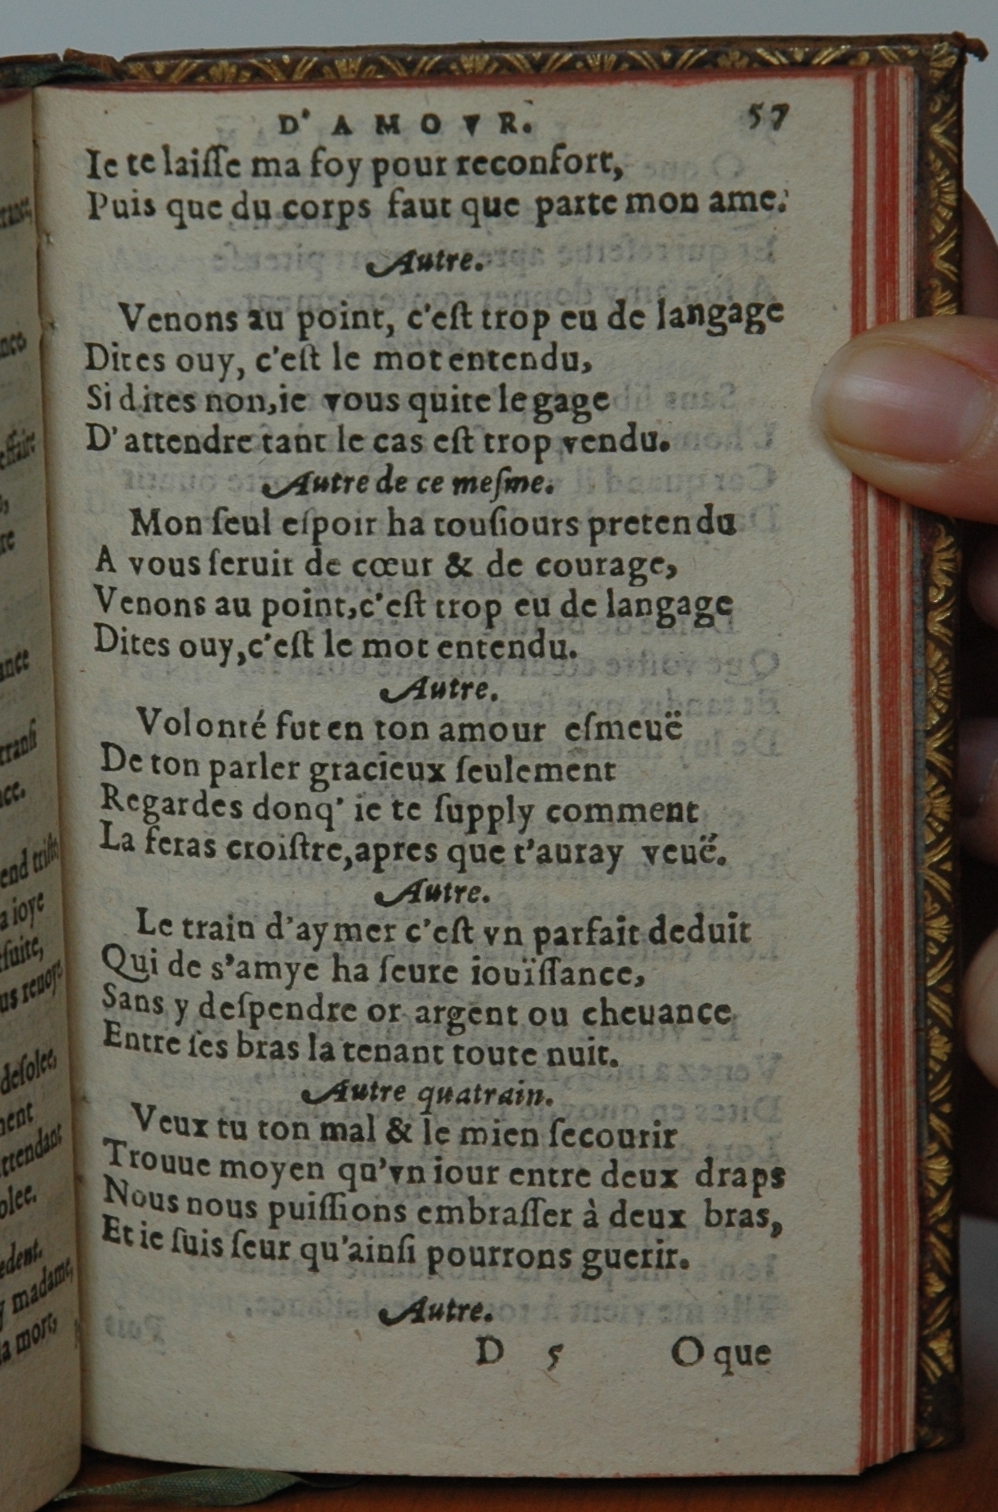 D' A M O V R. 57
Ie te laiſſe ma foy pour reconfort,
Puis que du corps faut que parte mon ame.
Autre.
Venons au point, c'eſt trop eu de langage
Dites ouy, c'eſt le mot entendu,
Si dites non, ie vous quite le gage
D'attendre tant le cas eſt trop vendu.
Autre de ce meſme.
Mon ſeul eſpoir ha touſiours pretendu
A vous ſeruir de cœur & de courage,
Venons au point, c'eſt trop eu de langage
Dites ouy, c'eſt le mot entendu.
Autre.
Volonté fut en ton amour eſmeuë
De ton parler gracieux ſeulement
Regardes donq' ie te ſupply comment
La feras croiſtre, apres que t'auray veuë.
Autre.
Le train d'aymer c'eſt vn parfait deduit
Qui de s'amye ha ſeure iouïſſance,
Sans y deſpendre or argent ou cheuance
Entre ſes bras la tenant toute nuit.
Autre quatrain.
Veux tu ton mal & le mien ſecourir
Trouue moyen qu'vn iour entre deux draps
Nous nous puiſſions embraſſer à deux bras,
Et ie ſuis ſeur qu'ainſi pourrons guerir.
Autre.
D 5 O que